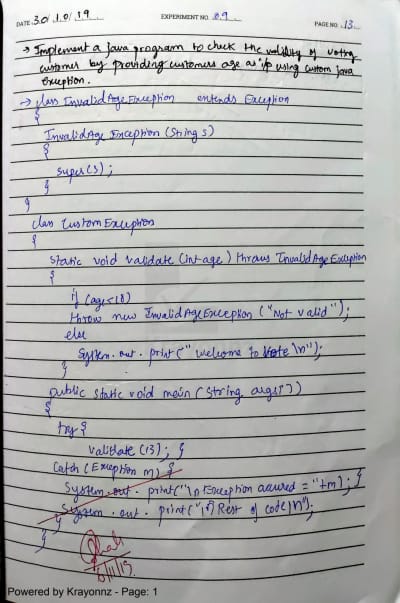 DATE: 30/10/19 EXPERIMENT NO. 09 PAGE NO. 13
→ Implement a java program to check the validity of voting
customer by providing customers age as i/p using custom java
exception.
→ class InvalidAgeException extends Exception
{
InvalidAge Exception (String s)
{
super(s);
}
}
class Custom Exception
{
static void validate (int age) throws InvalidAge Exception
{
if (age<18)
throw new InvalidAgeException ("Not valid");
else
System.out.print(" welcome to Vote \n");
}
public static void main (String args[])
{
try {
validate (13); }
Catch (Exception m) {
System.out.print("\n Exception occured = "+m); }
System.out.print("\n Rest of code\n");
}
}
Powered by Krayonnz - Page: 1